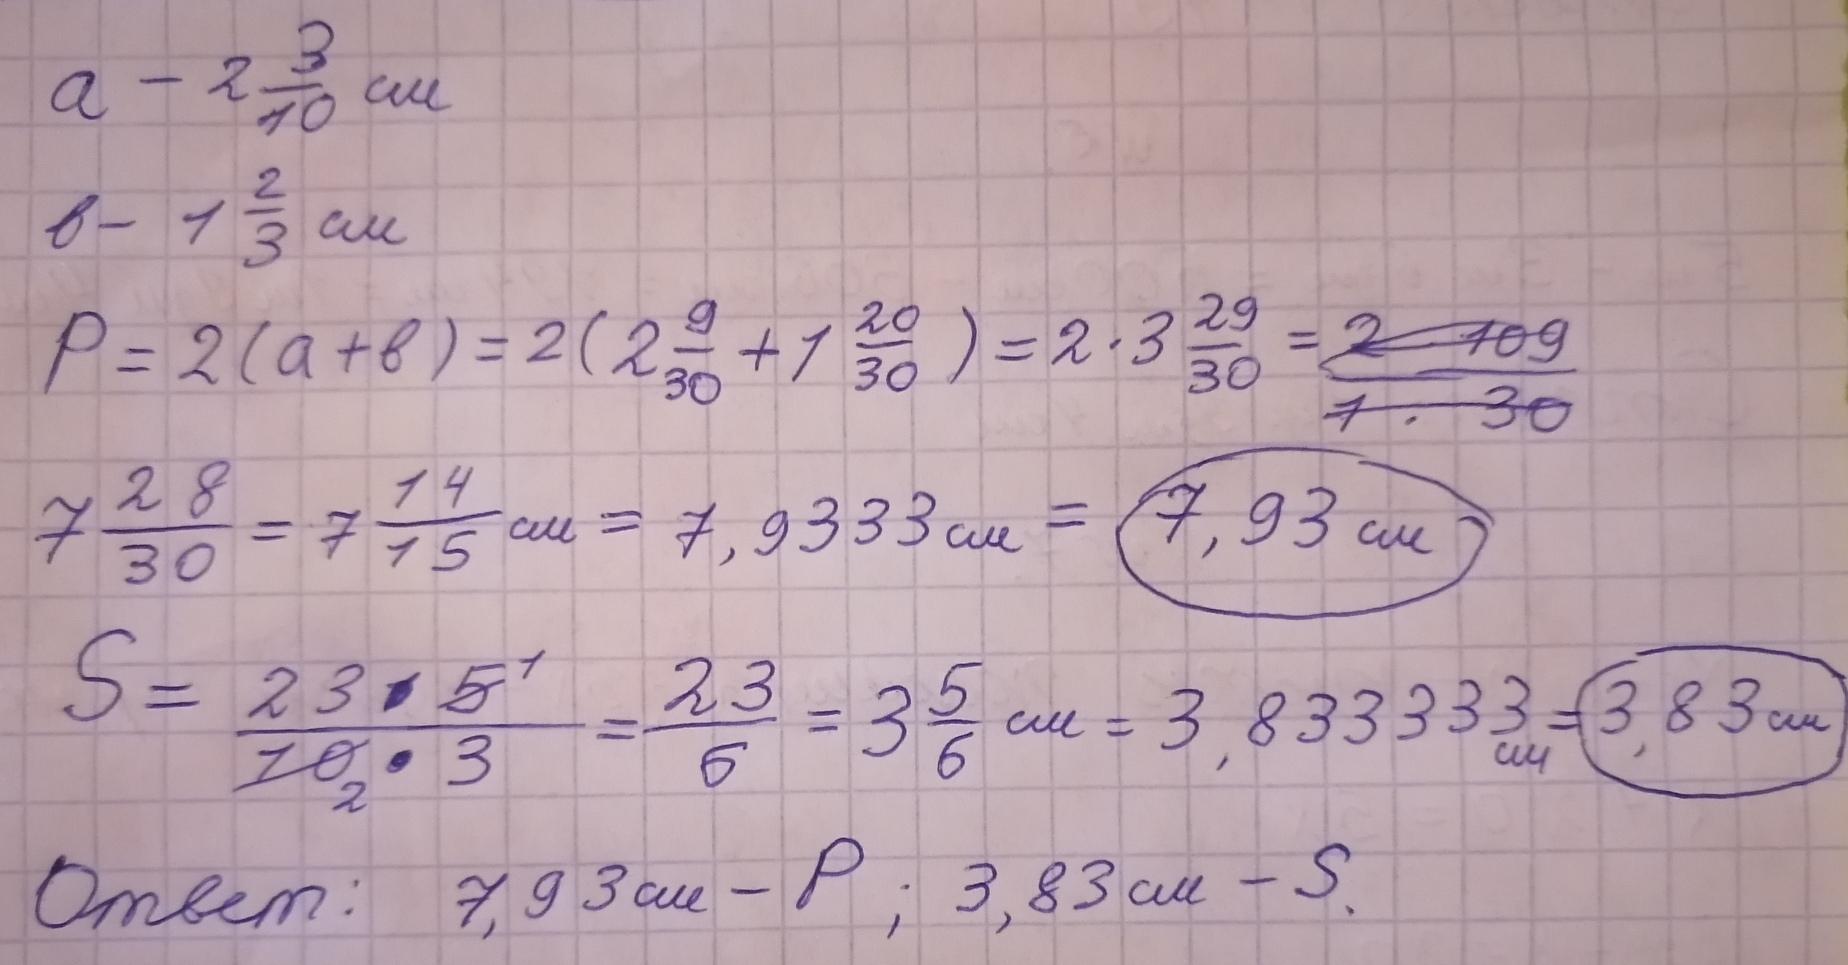 a - 2 3/10 см
в - 1 2/3 см
P = 2(a+в) = 2(2 9/30 + 1 20/30) = 2·3 29/30 = 2 109/1·30
7 28/30 = 7 14/15 см = 7,9333 см = 7,93 см
S = 23·5 1/10 2·3 = 23/6 = 3 5/6 см = 3,833333 см = 3,83 см
Ответ: 7,93 см - P; 3,83 см - S.